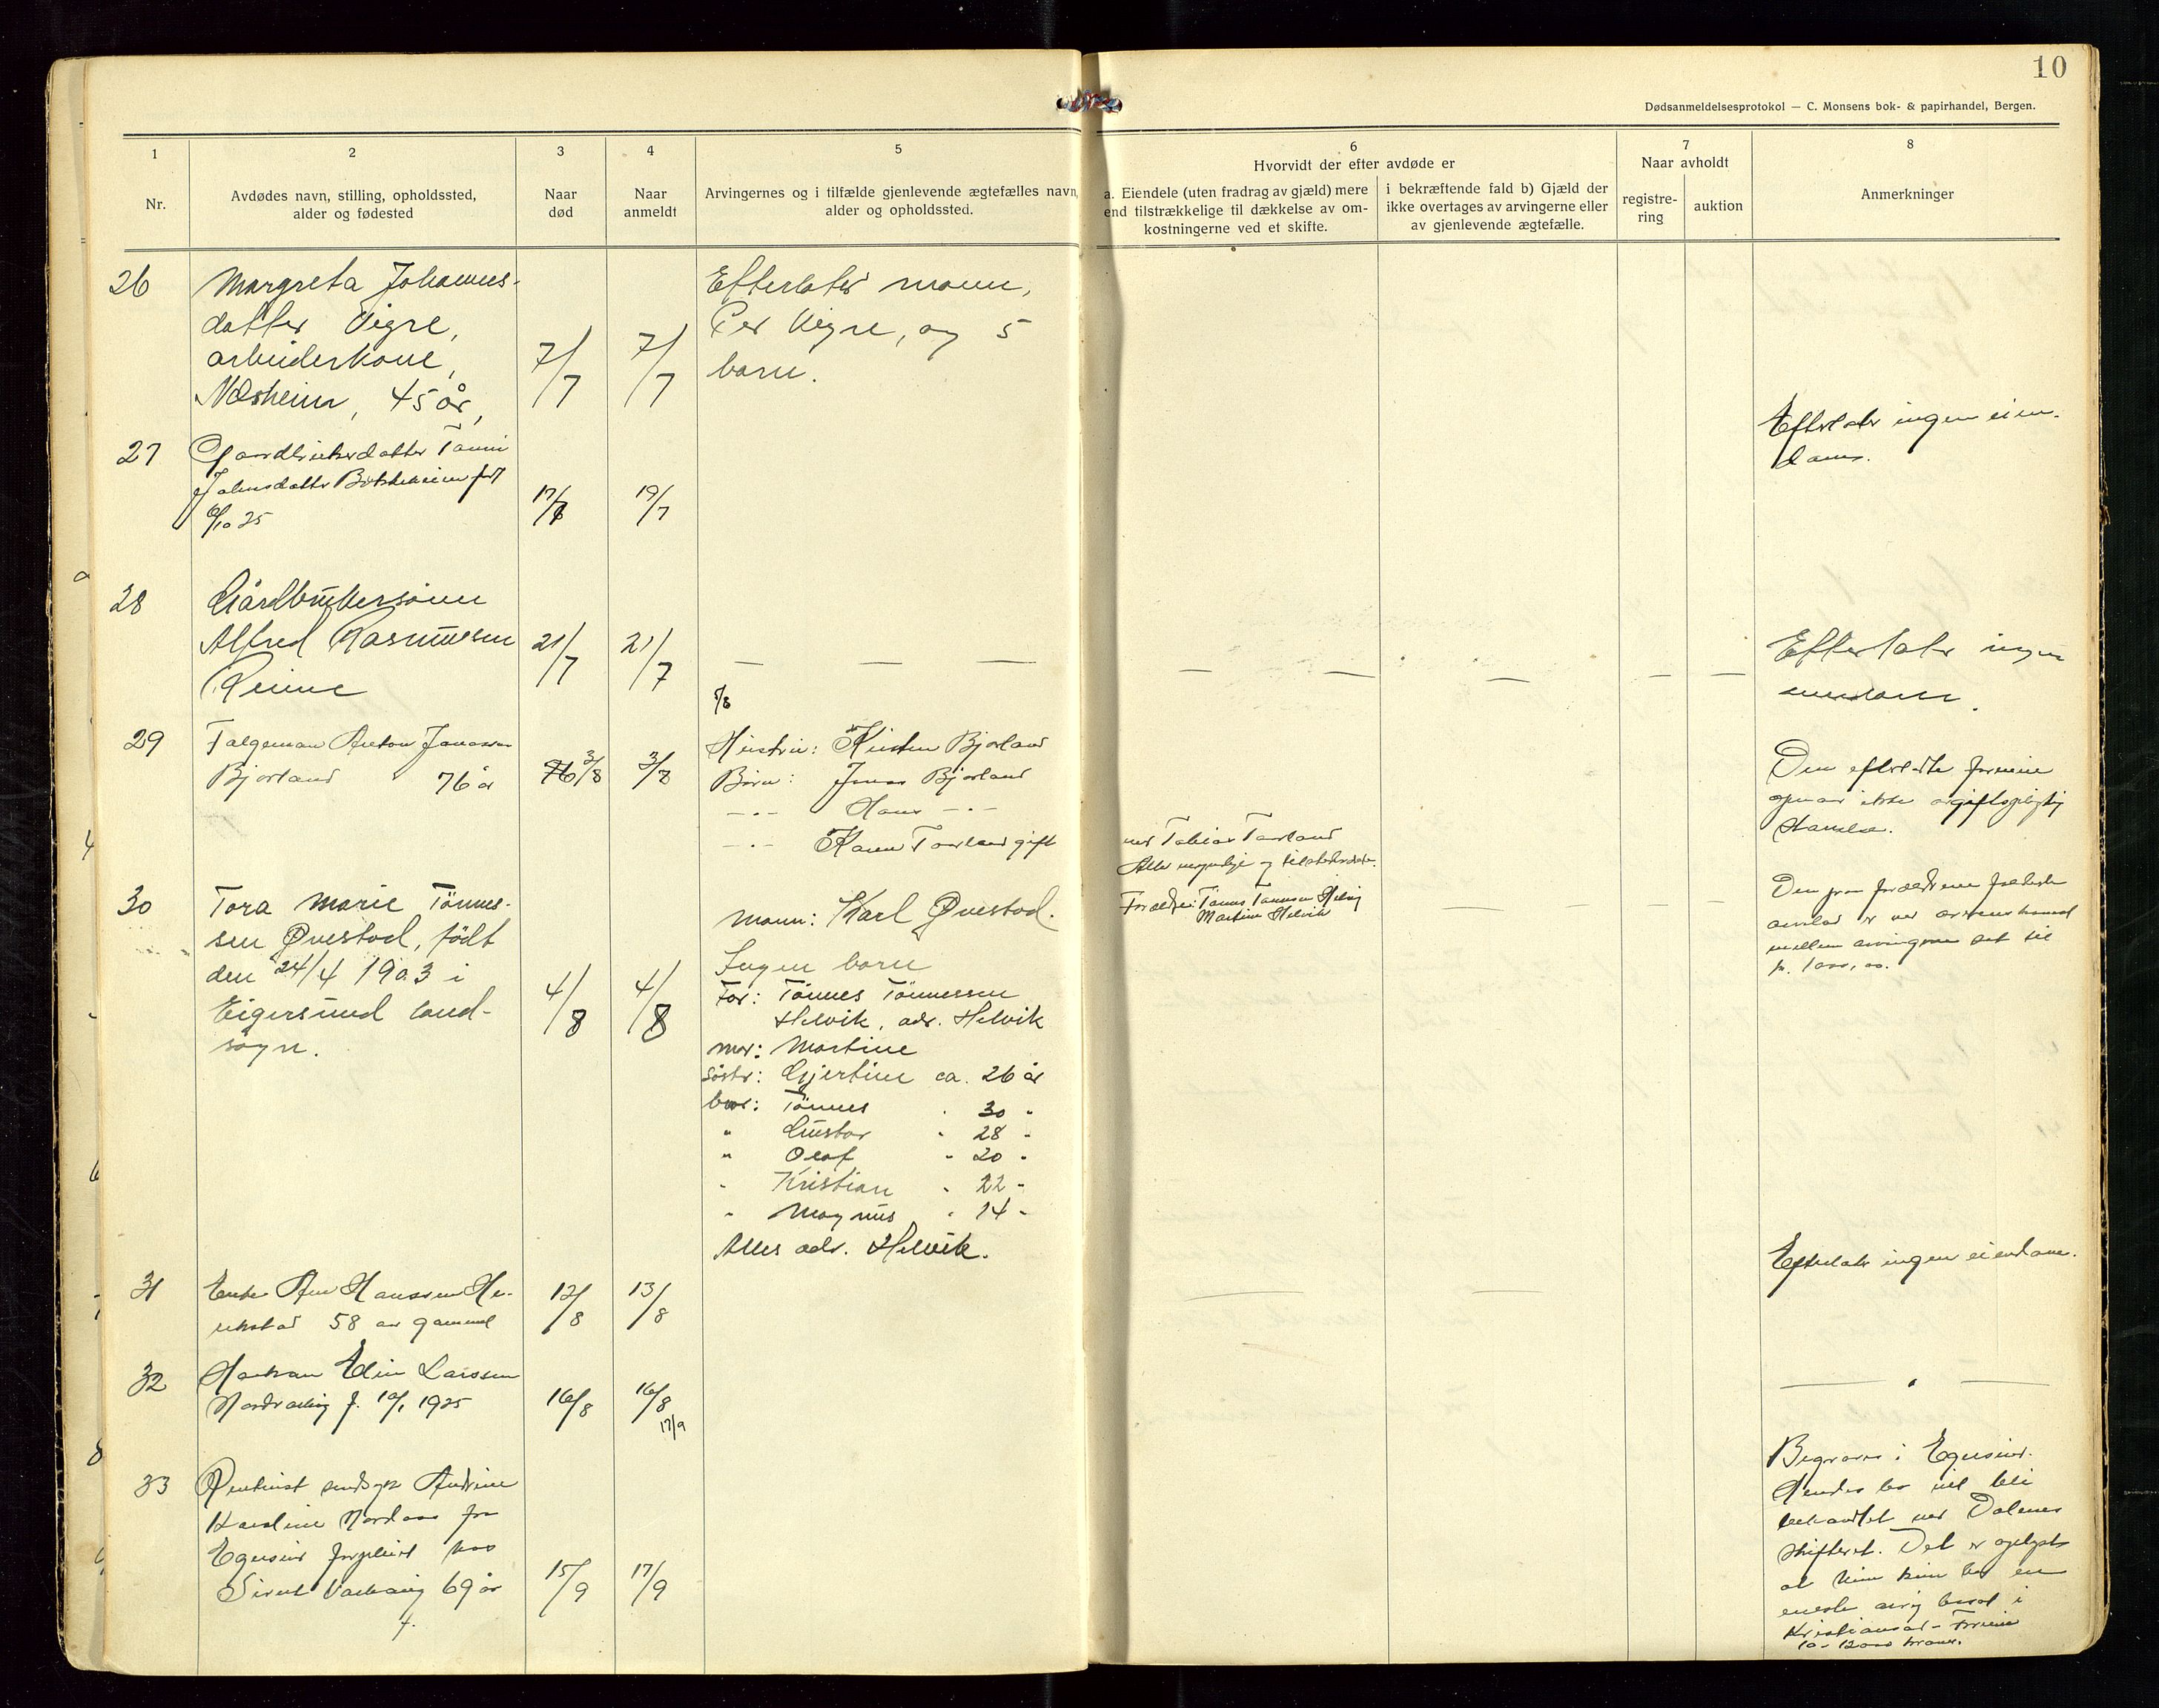 10
Dødsanmeldelsesprotokol — C. Monsens bok- & papirhandel, Bergen.
1
Nr.
2
Avdødes navn, stilling, opholdssted,
alder og fødested
3
Naar
død
4
Naar
anmeldt
5
Arvingernes og i tilfælde gjenlevende ægtefælles navn,
alder og opholdssted.
6
Hvorvidt der efter avdøde er
a. Eiendele (uten fradrag av gjæld) mere
end tilstrækkelige til dækkelse av om-
kostningerne ved et skifte.
i bekræftende fald b) Gjæld der
ikke overtages av arvingerne eller
av gjenlevende ægtefælle.
7
Naar avholdt
registre-
ring
auktion
8
Anmerkninger
26
Margreta Johannes-
datter Vigre,
arbeiderkone,
Næsheim, 45 år,
7/7
7/7
Efterlater mann,
Per Vigre, og 5
barn.
27
Gaardbrukerdatter
6/10 25
17/7
19/7
Efterlater ingen eien-
dom.
28
Gårdbrukersønn
Alfred Rasmussen
21/7
21/7
— — —
— — — — —
Efterlater ingen
eiendom.
5/8
29
Anton Jonassen
Bjorland 76 år
3/8
3/8
Hustru: Kirsten Bjorland
Børn: Jonas Bjorland
-"- Hans -"-
-"- Karen Tarland gift
med Tobias Tarland
Alle myndige og tilstedeværende.
Den efterlatte formue
opnaar ikke avgiftspligtig
størrelse.
30
Tora Marie Tönnes-
sen Øvestad, født
den 24/4 1903 i
Eigersund land-
sogn.
4/8
4/8
Mann: Karl Øvestad.
Ingen barn
Far: Tönnes Tönnessen
Helvik, adr. Helvik
mor: Martine
søstr: Gjertine ca. 26 år
bror: Tönnes " 30 "
" Gustav " 28 "
" Olaf " 20 "
" Kristian " 22 "
" Magnus " 14 "
Alles adr. Helvik.
Forældre: Tönnes Tönnesen Helvig
Martine Helvik
Den fra forældrene
er ved overenskomst
mellem arvingene sat til
kr. 1000,00.
31
Enke Ane Hanssen
58 aar gammel
12/8
13/8
Efterlater ingen eiendom.
32
Edin Larssen
f. 10/1 1925
16/8
16/8
17/9
33
Rentenist sindsyk Andrine
Karoline Nordaas fra
Egersund forpleiet hos
Sivert 69 år
15/9
17/9
Begraves i Egersund.
Hendes bo vil bli
behandlet ved Dalenes
skifteret. Det er oplyst
at hun kun har en
eneste arving bosat i
Kristiansand - Formue
10 - 12000 kroner.